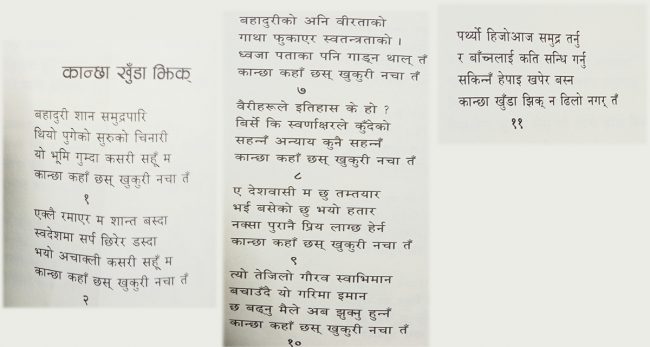 कान्छा खुँडा झिक्
बहादुरी शान समुद्रपारि
थियो पुगेको सुरुको चिनारी
यो भूमि गुम्दा कसरी सहूँ म
कान्छा कहाँ छस् खुकुरी नचा तँ
१
एक्लै रमाएर म शान्त बस्दा
स्वदेशमा सर्प छिरेर डस्दा
भयो अचाक्ली कसरी सहूँ म
कान्छा कहाँ छस् खुकुरी नचा तँ
२
बहादुरीको अनि वीरताको
गाथा फुकाएर स्वतन्त्रताको ।
ध्वजा पताका पनि गाड्न थाल् तँ
कान्छा कहाँ छस् खुकुरी नचा तँ
७
वैरीहरूले इतिहास के हो ?
बिर्से कि स्वर्णाक्षरले कुँदेको
सहन्नँ अन्याय कुनै सहन्नँ
कान्छा कहाँ छस् खुकुरी नचा तँ
८
ए देशवासी म छु तम्तयार
भई बसेको छु भयो हतार
नक्सा पुरानै प्रिय लाग्छ हेर्न
कान्छा कहाँ छस् खुकुरी नचा तँ
९
त्यो तेजिलो गौरव स्वाभिमान
बचाउँदै यो गरिमा इमान
छ बढ्नु मैले अब झुक्नु हुन्नँ
कान्छा कहाँ छस् खुकुरी नचा तँ
१०
पर्थ्यो हिजोआज समुद्र तर्नु
र बाँच्नलाई कति सन्धि गर्नु
सकिन्नँ हेपाइ खपेर बस्न
कान्छा खुँडा झिक् न ढिलो नगर् तँ
११